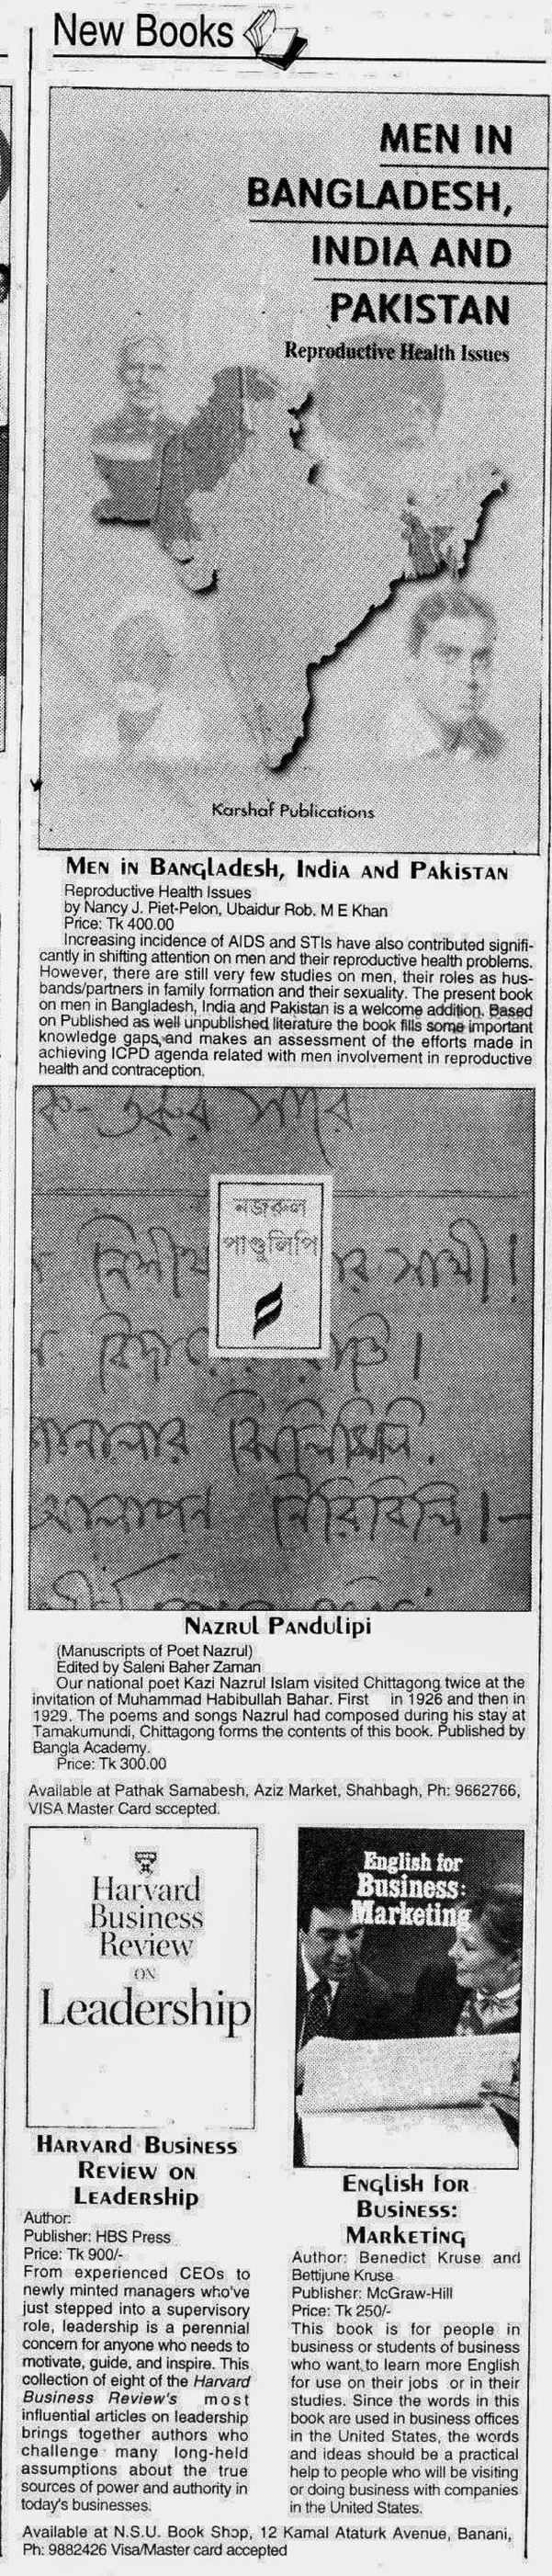 New Books
MEN IN
BANGLADESH,
INDIA AND
PAKISTAN
Reproductive Health Issues
Karshaf Publications
MEN IN BANGLADESH, INDIA AND PAKISTAN
Reproductive Health Issues
by Nancy J. Piet-Pelon, Ubaidur Rob. M E Khan
Price: Tk 400.00
Increasing incidence of AIDS and STIs have also contributed signifi-
cantly in shifting attention on men and their reproductive health problems.
However, there are still very few studies on men, their roles as hus-
bands/partners in family formation and their sexuality. The present book
on men in Bangladesh, India and Pakistan is a welcome addition. Based
on Published as well unpublished literature the book fills some important
knowledge gaps and makes an assessment of the efforts made in
achieving ICPD agenda related with men involvement in reproductive
health and contraception.
নজরুল
পাণ্ডুলিপি
সাথী!
ঝিলিমিলি.
আলাপন নিরিবিলি।-
NAZRUL PANDULIPI
(Manuscripts of Poet Nazrul)
Edited by Saleni Baher Zaman
Our national poet Kazi Nazrul Islam visited Chittagong twice at the
invitation of Muhammad Habibullah Bahar. First in 1926 and then in
1929. The poems and songs Nazrul had composed during his stay at
Tamakumundi, Chittagong forms the contents of this book. Published by
Bangla Academy.
Price: Tk 300.00
Available at Pathak Samabesh, Aziz Market, Shahbagh, Ph: 9662766,
VISA Master Card sccepted.
Harvard
Business
Review
ON
Leadership
HARVARD BUSINESS
REVIEW ON
LEADERSHIP
Author:
Publisher: HBS Press
Price: Tk 900/-
From experienced CEOs to
newly minted managers who've
just stepped into a supervisory
role, leadership is a perennial
concern for anyone who needs to
motivate, guide, and inspire. This
collection of eight of the Harvard
Business Review's most
influential articles on leadership
brings together authors who
challenge many long-held
assumptions about the true
sources of power and authority in
today's businesses.
English for
Business:
Marketing
ENGLISH FOR
BUSINESS:
MARKETING
Author: Benedict Kruse and
Bettijune Kruse
Publisher: McGraw-Hill
Price: Tk 250/-
This book is for people in
business or students of business
who want to learn more English
for use on their jobs or in their
studies. Since the words in this
book are used in business offices
in the United States, the words
and ideas should be a practical
help to people who will be visiting
or doing business with companies
in the United States.
Available at N.S.U. Book Shop, 12 Kamal Ataturk Avenue, Banani,
Ph: 9882426 Visa/Master card accepted